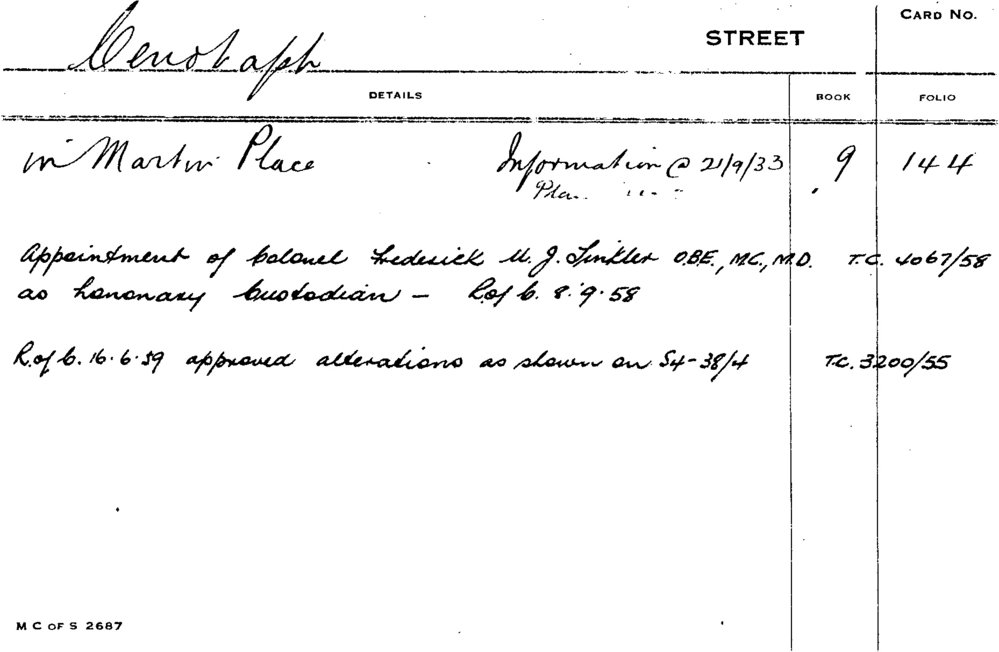 Cenotaph STREET CARD NO.
DETAILS BOOK FOLIO
in Martin Place Information @ 21/9/33 9 144
Appointment of Colonel Frederick M. J. Tinkler O.B.E., M.C., M.D. T.C. 4067/58
as honorary Custodian — R.of C. 8.9.58
R.of C. 16.6.59 approved alterations as shown on S4-38/4 T.C. 3200/55
M C OF S 2687